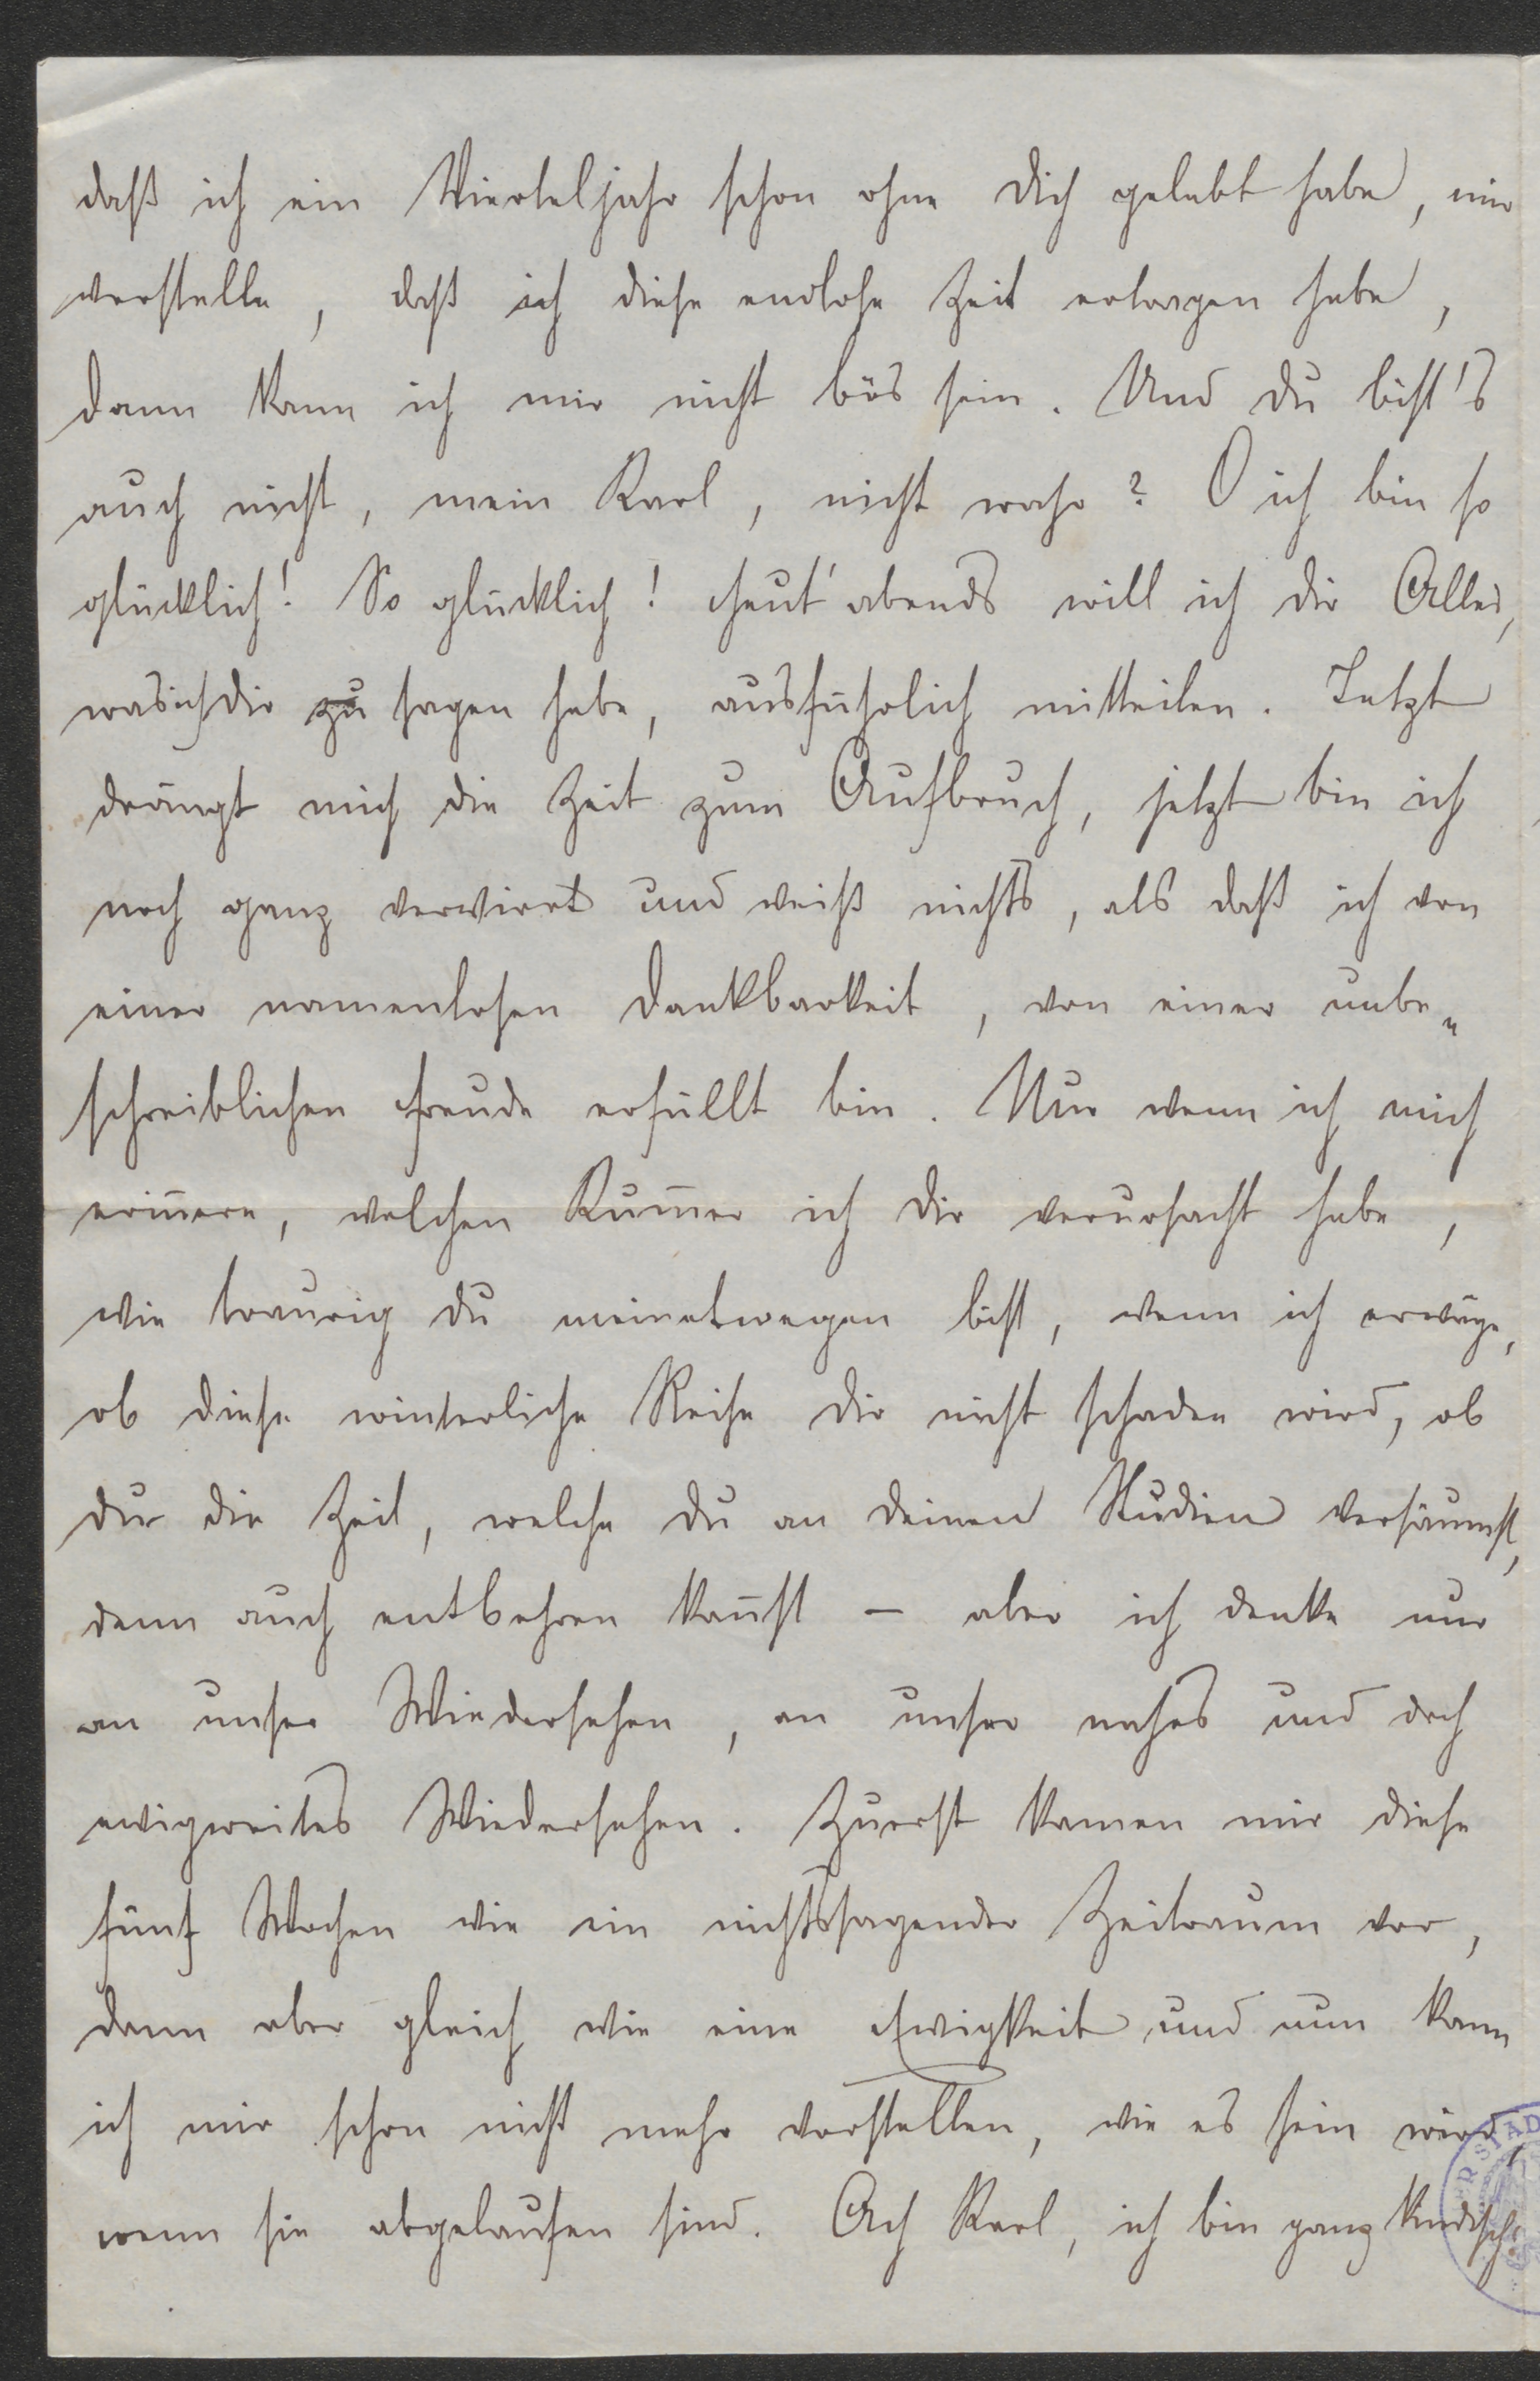 daß ich ein Vierteljahr schon ohne Dich gelebt habe, mir
vorstelle, daß ich diese endlose Zeit ertragen habe,
dann kann ich mir nicht bös sein. Und Du bist's
auch nicht, mein Karl, nicht wahr? O ich bin so
glücklich! So glücklich! Heut' abends will ich Dir Alles,
was ich Dir zu sagen habe, ausführlich mitteilen. Jetzt
drängt mich die Zeit zum Aufbruch, jetzt bin ich
noch ganz verwirrt und weiß nichts, als daß ich von
einer namenlosen Dankbarkeit, von einer unbe„
schreiblichen Freude erfüllt bin. Nur wenn ich mich
erin̄ere, welchen Kum̄er ich Dir verursacht habe,
wie traurig Du meinetwegen bist, wenn ich erwäge,
ob diese winterliche Reise Dir nicht schaden wird, ob
Du die Zeit, welche Du an Deinen Studien versäumst,
denn auch entbehren kan̄st – aber ich denke nur
an unser Wiedersehen, an unser nahes und doch
ewigweites Wiedersehen. Zuerst kamen mir diese
fünf Wochen wie ein nichtssagender Zeitraum vor,
dann aber gleich wie eine Ewigkeit und nun kann
ich mir schon nicht mehr vorstellen, wie es sein wird,
wenn sie abgelaufen sind. Ach Karl, ich bin ganz kindisch.